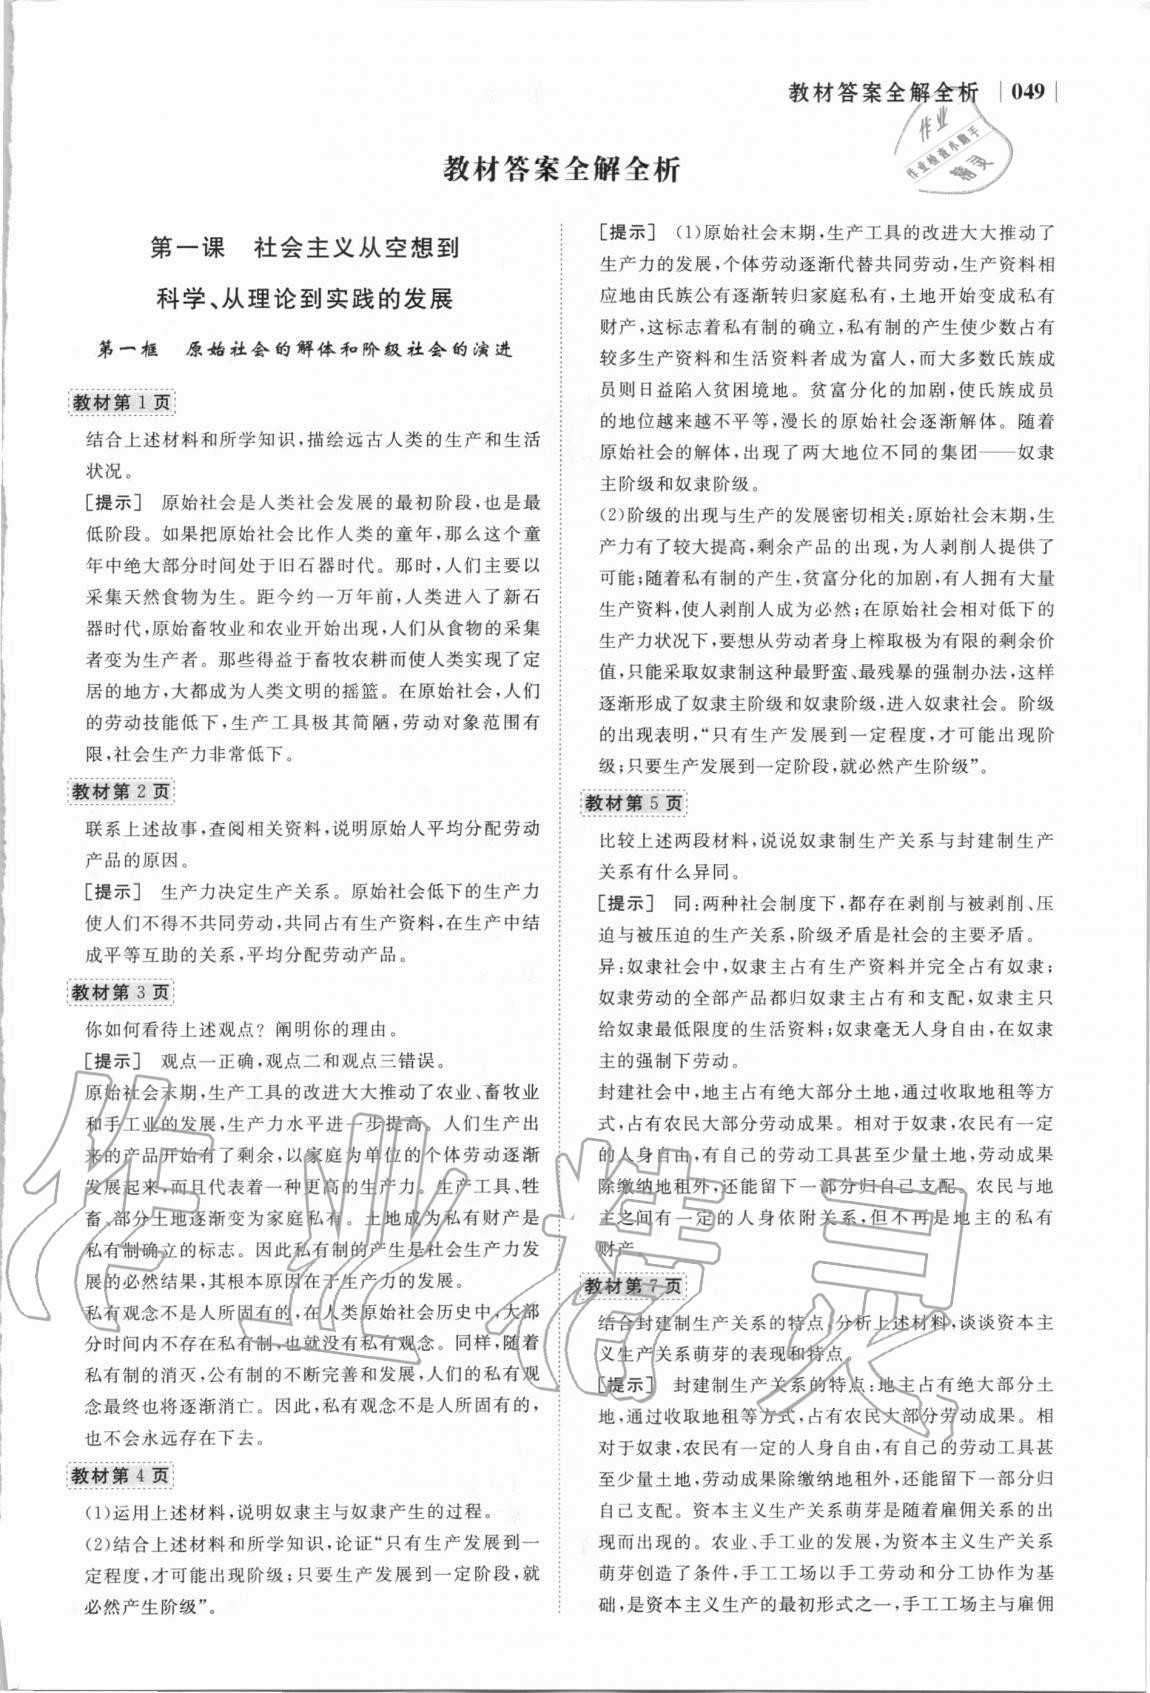 教材答案全解全析 049
作业
作业检查小助手
精灵
教材答案全解全析
第一课 社会主义从空想到
科学、从理论到实践的发展
第一框 原始社会的解体和阶级社会的演进
教材第1页
结合上述材料和所学知识,描绘远古人类的生产和生活
状况。
[提示] 原始社会是人类社会发展的最初阶段,也是最
低阶段。如果把原始社会比作人类的童年,那么这个童
年中绝大部分时间处于旧石器时代。那时,人们主要以
采集天然食物为生。距今约一万年前,人类进入了新石
器时代,原始畜牧业和农业开始出现,人们从食物的采集
者变为生产者。那些得益于畜牧农耕而使人类实现了定
居的地方,大都成为人类文明的摇篮。在原始社会,人们
的劳动技能低下,生产工具极其简陋,劳动对象范围有
限,社会生产力非常低下。
教材第2页
联系上述故事,查阅相关资料,说明原始人平均分配劳动
产品的原因。
[提示] 生产力决定生产关系。原始社会低下的生产力
使人们不得不共同劳动,共同占有生产资料,在生产中结
成平等互助的关系,平均分配劳动产品。
教材第3页
你如何看待上述观点?阐明你的理由。
[提示] 观点一正确,观点二和观点三错误。
原始社会末期,生产工具的改进大大推动了农业、畜牧业
和手工业的发展,生产力水平进一步提高。人们生产出
来的产品开始有了剩余,以家庭为单位的个体劳动逐渐
发展起来,而且代表着一种更高的生产力。生产工具、牲
畜、部分土地逐渐变为家庭私有。土地成为私有财产是
私有制确立的标志。因此私有制的产生是社会生产力发
展的必然结果,其根本原因在于生产力的发展。
私有观念不是人所固有的,在人类原始社会历史中,大部
分时间内不存在私有制,也就没有私有观念。同样,随着
私有制的消灭,公有制的不断完善和发展,人们的私有观
念最终也将逐渐消亡。因此,私有观念不是人所固有的,
也不会永远存在下去。
教材第4页
(1)运用上述材料,说明奴隶主与奴隶产生的过程。
(2)结合上述材料和所学知识,论证“只有生产发展到一
定程度,才可能出现阶级;只要生产发展到一定阶段,就
必然产生阶级”。
[提示] (1)原始社会末期,生产工具的改进大大推动了
生产力的发展,个体劳动逐渐代替共同劳动,生产资料相
应地由氏族公有逐渐转归家庭私有,土地开始变成私有
财产,这标志着私有制的确立,私有制的产生使少数占有
较多生产资料和生活资料者成为富人,而大多数氏族成
员则日益陷入贫困境地。贫富分化的加剧,使氏族成员
的地位越来越不平等,漫长的原始社会逐渐解体。随着
原始社会的解体,出现了两大地位不同的集团——奴隶
主阶级和奴隶阶级。
(2)阶级的出现与生产的发展密切相关:原始社会末期,生
产力有了较大提高,剩余产品的出现,为人剥削人提供了
可能;随着私有制的产生,贫富分化的加剧,有人拥有大量
生产资料,使人剥削人成为必然;在原始社会相对低下的
生产力状况下,要想从劳动者身上榨取极为有限的剩余价
值,只能采取奴隶制这种最野蛮、最残暴的强制办法,这样
逐渐形成了奴隶主阶级和奴隶阶级,进入奴隶社会。阶级
的出现表明,“只有生产发展到一定程度,才可能出现阶
级;只要生产发展到一定阶段,就必然产生阶级”。
教材第5页
比较上述两段材料,说说奴隶制生产关系与封建制生产
关系有什么异同。
[提示] 同:两种社会制度下,都存在剥削与被剥削、压
迫与被压迫的生产关系,阶级矛盾是社会的主要矛盾。
异:奴隶社会中,奴隶主占有生产资料并完全占有奴隶;
奴隶劳动的全部产品都归奴隶主占有和支配,奴隶主只
给奴隶最低限度的生活资料;奴隶毫无人身自由,在奴隶
主的强制下劳动。
封建社会中,地主占有绝大部分土地,通过收取地租等方
式,占有农民大部分劳动成果。相对于奴隶,农民有一定
的人身自由,有自己的劳动工具甚至少量土地,劳动成果
除缴纳地租外,还能留下一部分归自己支配。农民与地
主之间有一定的人身依附关系,但不再是地主的私有
财产。
教材第7页
结合封建制生产关系的特点,分析上述材料,谈谈资本主
义生产关系萌芽的表现和特点。
[提示] 封建制生产关系的特点:地主占有绝大部分土
地,通过收取地租等方式,占有农民大部分劳动成果。相
对于奴隶,农民有一定的人身自由,有自己的劳动工具甚
至少量土地,劳动成果除缴纳地租外,还能留下一部分归
自己支配。资本主义生产关系萌芽是随着雇佣关系的出
现而出现的。农业、手工业的发展,为资本主义生产关系
萌芽创造了条件,手工工场以手工劳动和分工协作为基
础,是资本主义生产的最初形式之一,手工工场主与雇佣
作业精灵